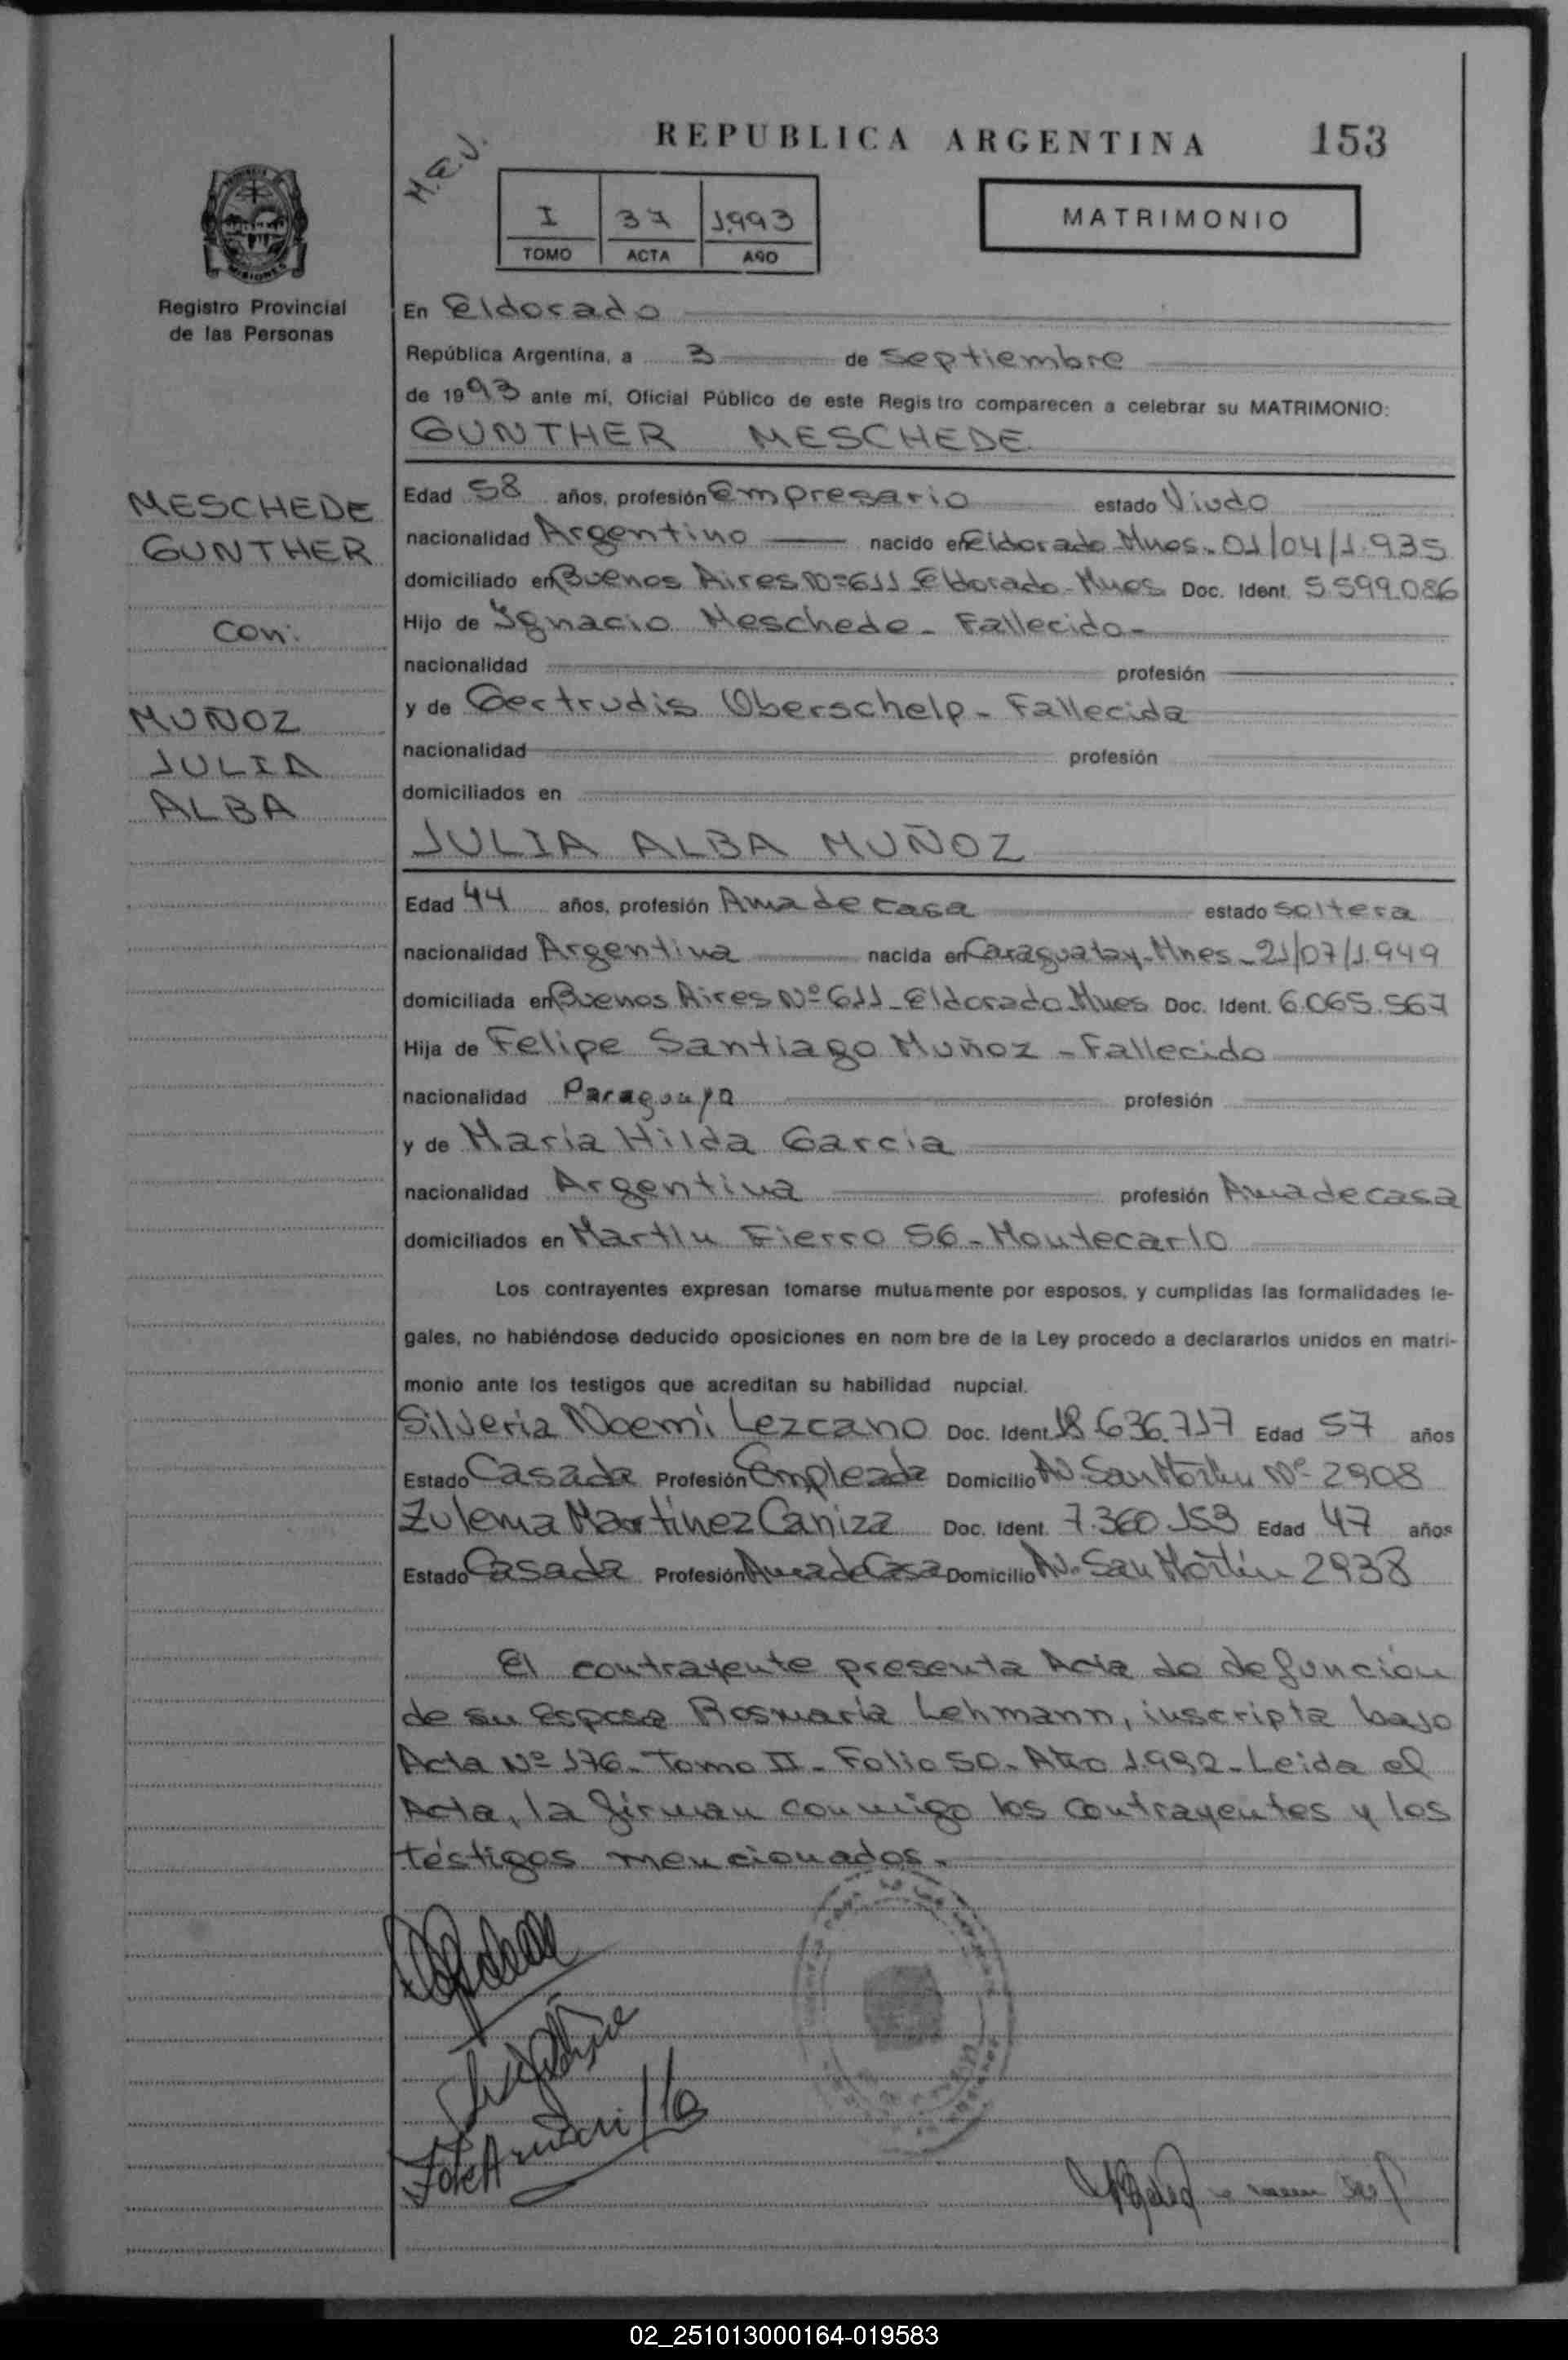 REPUBLICA ARGENTINA 153
M.G.V.
I 37 1993
TOMO ACTA AÑO
MATRIMONIO
MISIONES
Registro Provincial
de las Personas
En Eldorado
República Argentina, a 3 de Septiembre
de 1993 ante mí, Oficial Público de este Registro comparecen a celebrar su MATRIMONIO:
GUNTHER MESCHEDE
MESCHEDE
GUNTHER
con:
MUÑOZ
JULIA
ALBA
Edad 58 años, profesión Empresario estado Viudo
nacionalidad Argentino nacido en Eldorado Mnes. 01/04/1.935
domiciliado en Buenos Aires Nº 611 Eldorado - Mnes Doc. Ident. 5.599.086
Hijo de Ygnacio Meschede - Fallecido -
nacionalidad profesión
y de Gertrudis Oberschelp - Fallecida
nacionalidad profesión
domiciliados en
JULIA ALBA MUÑOZ
Edad 44 años, profesión Ama de casa estado soltera
nacionalidad Argentina nacida en Caraguatay - Mnes - 21/07/1.949
domiciliada en Buenos Aires Nº 611 - Eldorado Mnes Doc. Ident. 6.065.567
Hija de Felipe Santiago Muñoz - Fallecido
nacionalidad Paraguaya profesión
y de María Hilda Garcia
nacionalidad Argentina profesión Ama de casa
domiciliados en Martín Fierro 56 - Montecarlo
Los contrayentes expresan tomarse mutuamente por esposos, y cumplidas las formalidades le-
gales, no habiéndose deducido oposiciones en nom bre de la Ley procedo a declararlos unidos en matri-
monio ante los testigos que acreditan su habilidad nupcial.
Silveria Noemí Lezcano Doc. Ident 18.636.717 Edad 57 años
Estado Casada Profesión Empleada Domicilio Av. San Martín Nº 2908
Zulema Martínez Caniza Doc. Ident. 7.360.153 Edad 47 años
Estado Casada Profesión Ama de Casa Domicilio Av. San Martín 2938
El contrayente presenta Acta de defunción
de su Esposa Rosmaría Lehmann, inscripta bajo
Acta Nº 176 - Tomo II - Folio 50 - Año 1.992 - Leida el
Acta, la firman conmigo los contrayentes y los
testigos mencionados.
02_251013000164-019583